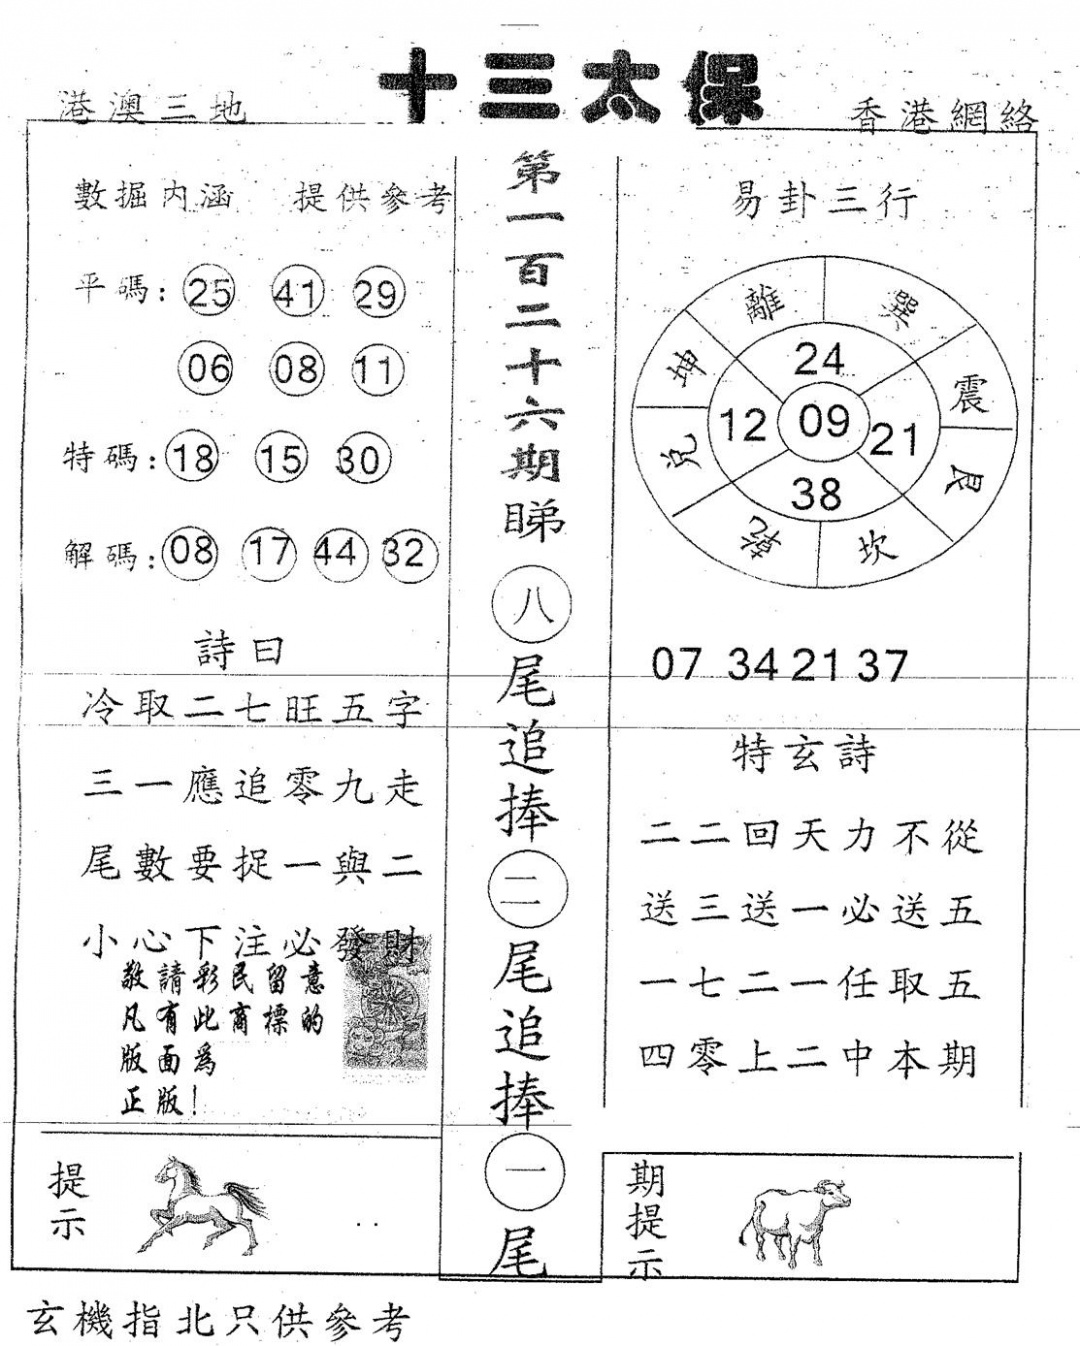 十三太保
港澳三地
香港網絡
數掘内涵 提供參考
平碼: 25 41 29
06 08 11
特碼: 18 15 30
解碼: 08 17 44 32
詩曰
冷取二七旺五字
三一應追零九走
尾數要捉一與二
小心下注必發財
敬請彩民留意
凡有此商標的
版面為
正版!
提示
第一百二十六期睇八尾追捧二尾追捧一尾
易卦三行
離 巽
坤 震
兌 艮
乾 坎
24
12 09 21
38
07 34 21 37
特玄詩
二二回天力不從
送三送一必送五
一七二一任取五
四零上二中本期
期提示
玄機指北只供參考